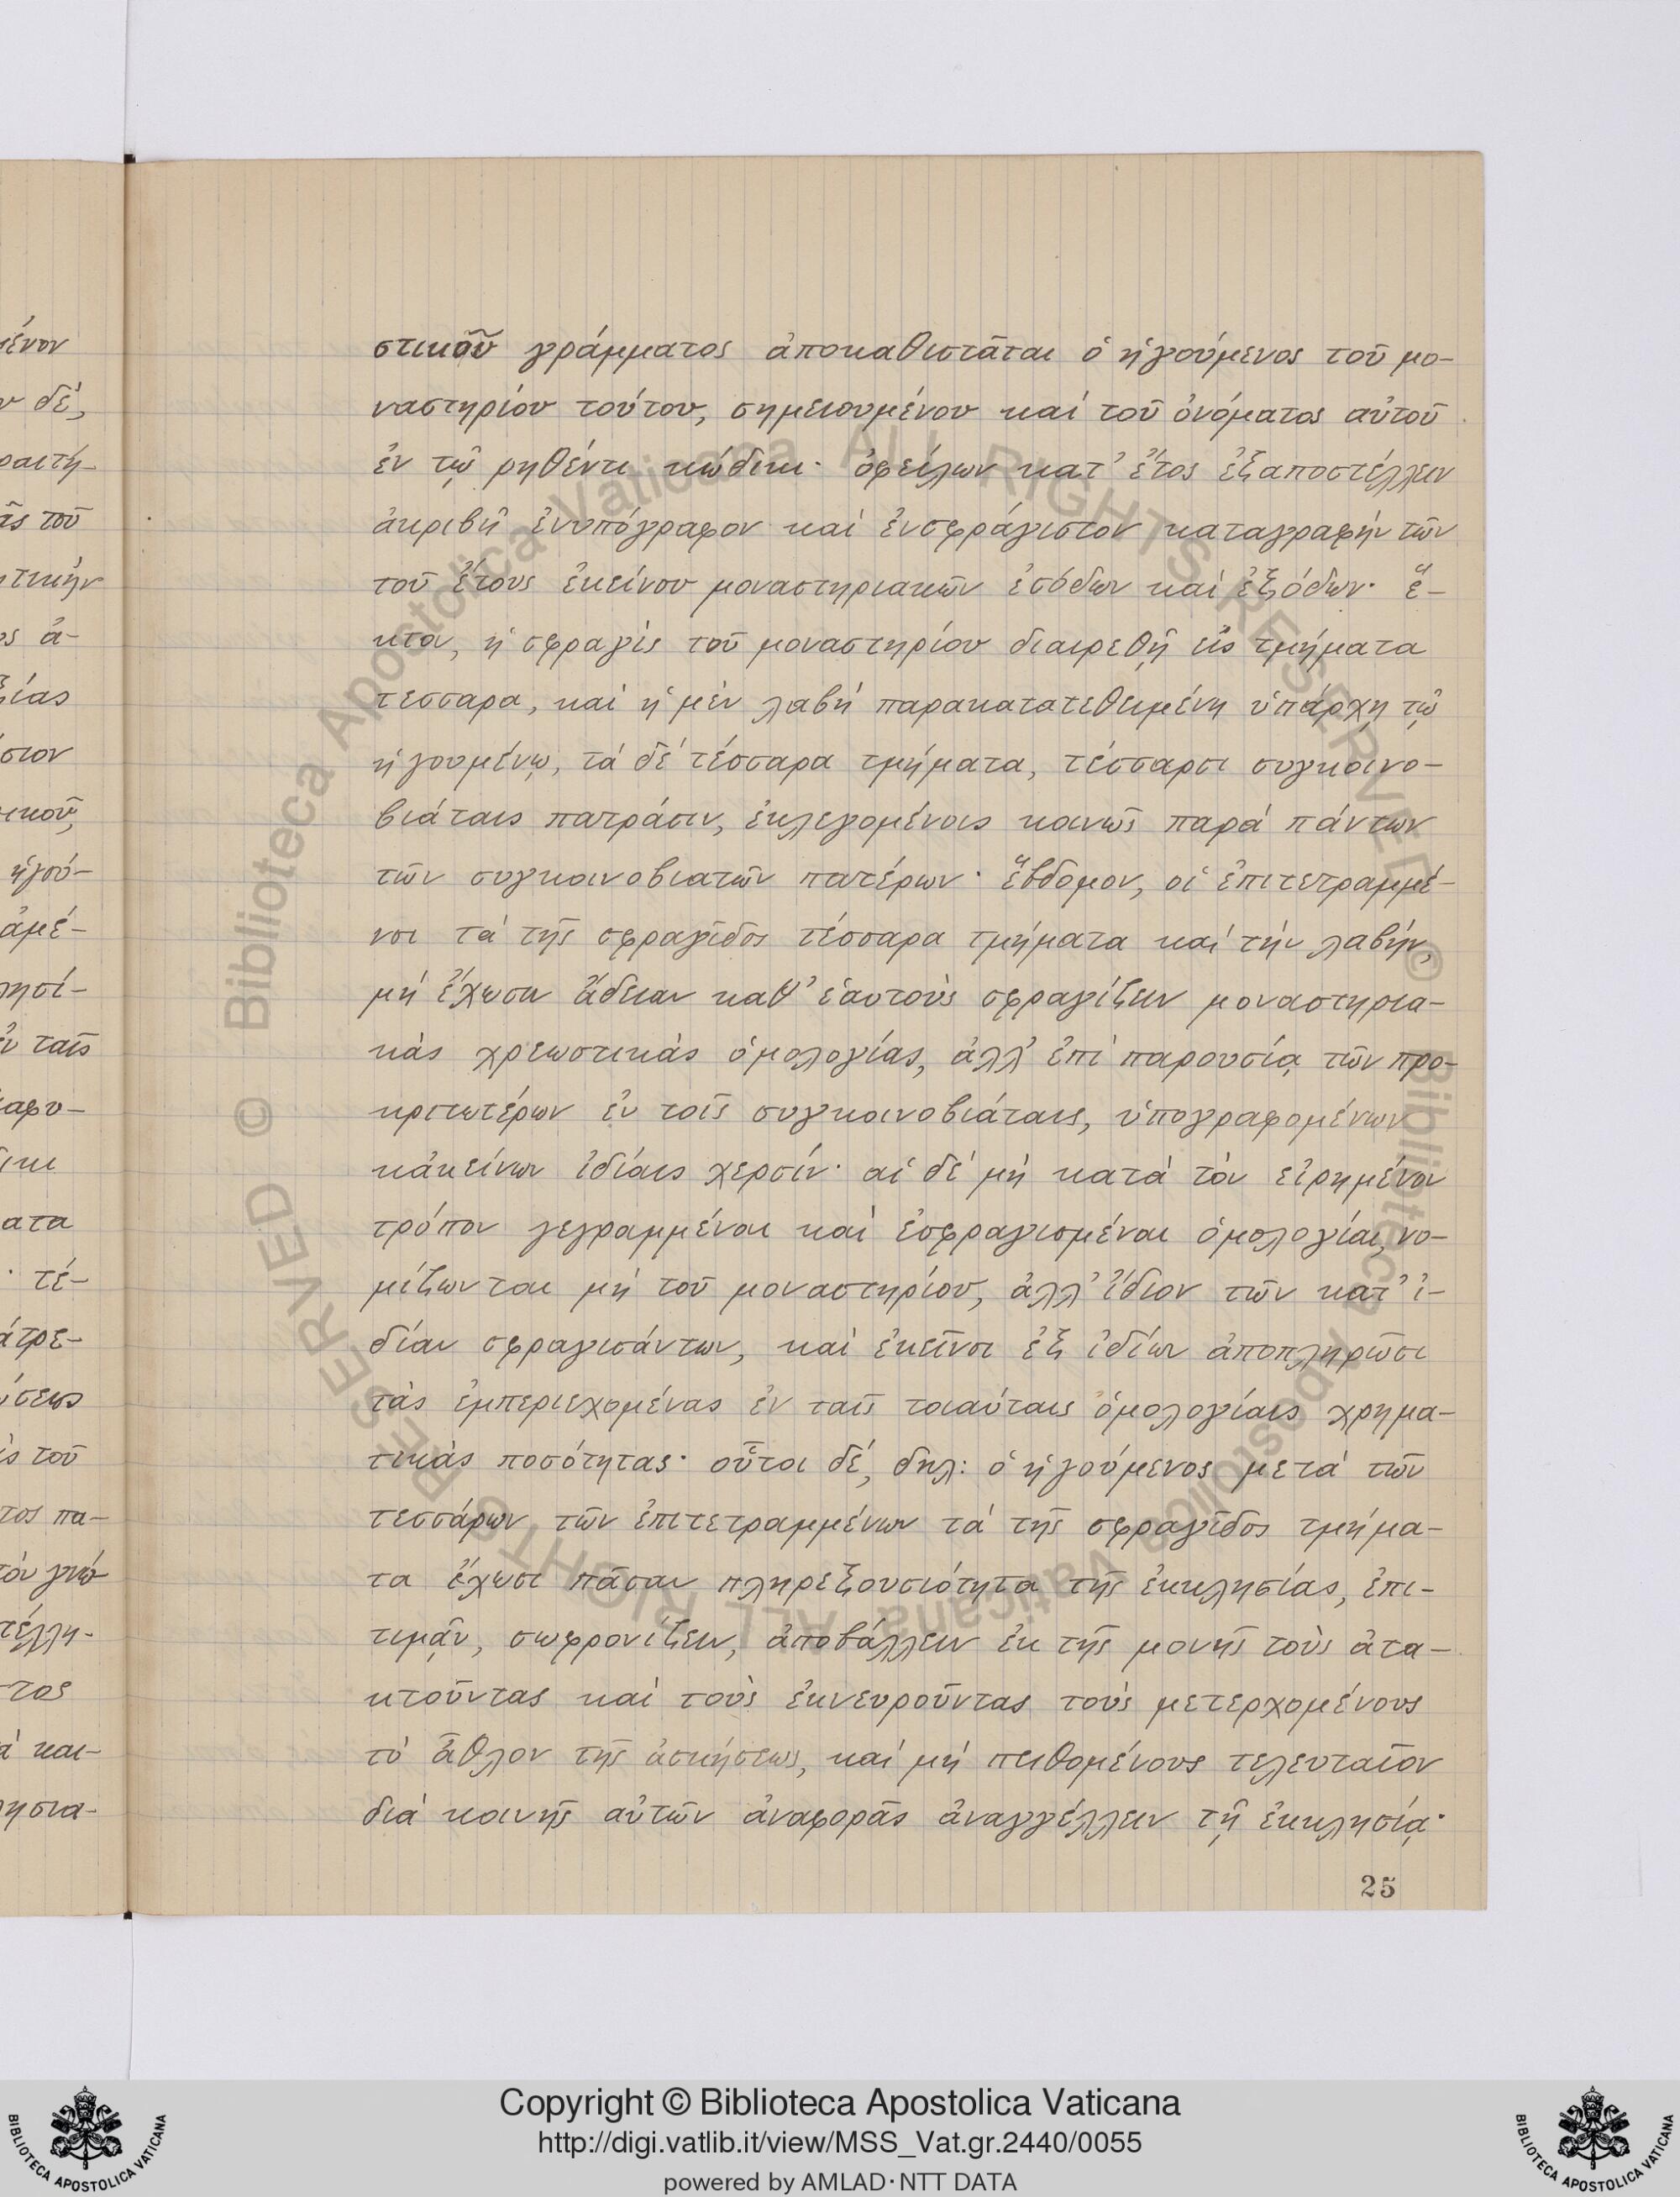 στικοῦ γράμματος ἀποκαθιστᾶται ὁ ἡγούμενος τοῦ μο-
ναστηρίου τούτου, σημειουμένου καὶ τοῦ ὀνόματος αὐτοῦ
ἐν τῷ ῥηθέντι κώδικι· ὀφείλων κατ' ἔτος ἐξαποστέλλειν
ἀκριβῆ ἐνυπόγραφον καὶ ἐνσφράγιστον καταγραφὴν τῶν
τοῦ ἔτους ἐκείνου μοναστηριακῶν ἐσόδων καὶ ἐξόδων· ἕ-
κτον, ἡ σφραγὶς τοῦ μοναστηρίου διαιρεθῇ εἰς τμήματα
τεσσαρα, καὶ ἡ μὲν λαβὴ παρακατατεθειμένη ὑπάρχῃ τῷ
ἡγουμένῳ, τὰ δὲ τέσσαρα τμήματα, τέσσαρσι συγκοινο-
βιάταις πατράσιν, ἐκλεγομένοις κοινῶς παρὰ πάντων
τῶν συγκοινοβιατῶν πατέρων· ἕβδομον, οἱ ἐπιτετραμμέ-
νοι τὰ τῆς σφραγῖδος τέσσαρα τμήματα καὶ τὴν λαβήν,
μὴ ἔχωσιν ἄδειαν καθ' ἑαυτοὺς σφραγίζειν μοναστηρια-
κὰς χρεωστικὰς ὁμολογίας, ἀλλ' ἐπὶ παρουσίᾳ τῶν προ-
κριτωτέρων ἐν τοῖς συγκοινοβιάταις, ὑπογραφομένων
κἀκείνων ἰδίαις χερσίν· αἱ δὲ μὴ κατὰ τὸν εἰρημένον
τρόπον γεγραμμέναι καὶ ἐσφραγισμέναι ὁμολογίαι, νο-
μίζωνται μὴ τοῦ μοναστηρίου, ἀλλ' ἴδιον τῶν κατ' ἰ-
δίαν σφραγισάντων, καὶ ἐκεῖνοι ἐξ ἰδίων ἀποπληρῶσι
τὰς ἐμπεριεχομένας ἐν ταῖς τοιαύταις ὁμολογίαις χρημα-
τικὰς ποσότητας· οὗτοι δέ, δηλ: ὁ ἡγούμενος μετὰ τῶν
τεσσάρων τῶν ἐπιτετραμμένων τὰ τῆς σφραγῖδος τμήμα-
τα ἔχωσι πᾶσαν πληρεξουσιότητα τῆς ἐκκλησίας, ἐπι-
τιμᾷν, σωφρονίζειν, ἀποβάλλειν ἐκ τῆς μονῆς τοὺς ἀτα-
κτοῦντας καὶ τοὺς ἐκνευροῦντας τοὺς μετερχομένους
τὸ ἆθλον τῆς ἀσκήσεως, καὶ μὴ πειθομένους τελευταῖον
διὰ κοινῆς αὐτῶν ἀναφορᾶς ἀναγγέλλειν τῇ ἐκκλησίᾳ·
25
Copyright © Biblioteca Apostolica Vaticana
http://digi.vatlib.it/view/MSS_Vat.gr.2440/0055
powered by AMLAD·NTT DATA